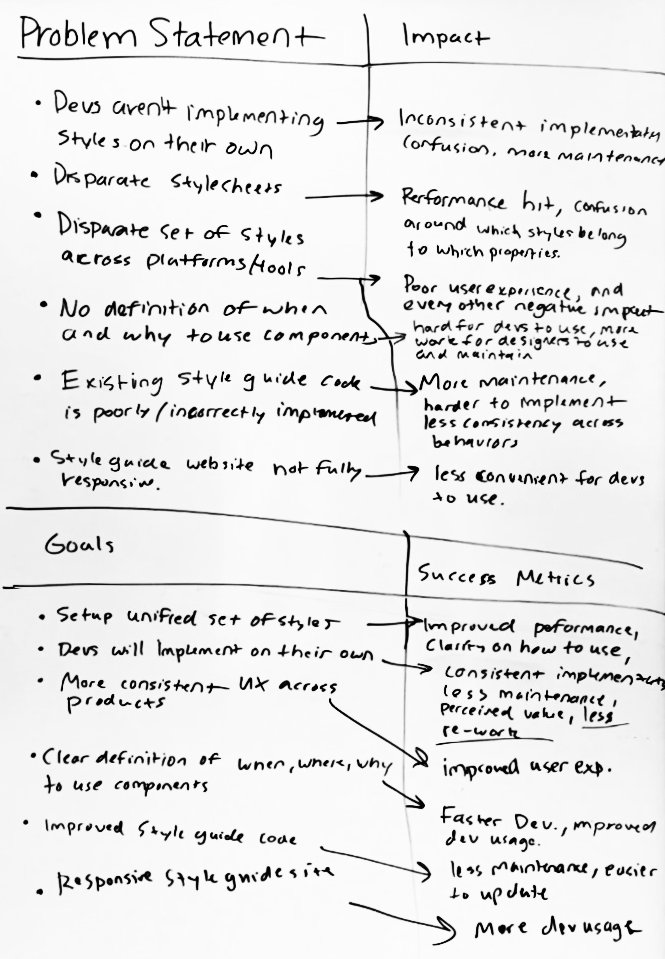 Problem Statement
Impact
• Devs aren't implementing
styles on their own
Inconsistent implementatn
confusion, more maintenance
• Disparate stylesheets
Performance hit, confusion
around which styles belong
to which properties.
• Disparate set of styles
across platforms/tools
Poor user experience, and
every other negative impact
• No definition of when
and why to use components
hard for devs to use, more
work for designers to use
and maintain
• Existing style guide code
is poorly/incorrectly implemented
More maintenance,
harder to implement
less consistency across
behaviors
• Style guide website not fully
responsive.
less convenient for devs
to use.
Goals
Success Metrics
• Setup unified set of styles
Improved peformance,
Clarity on how to use,
• Devs will Implement on their own
Consistent implementats
less maintenance,
perceived value, less
re-work
• More consistent UX across
products
improved user exp.
• Clear definition of when, where, why
to use components
Faster Dev., improved
dev usage.
• Improved Style guide code
less maintenance, easier
to update
• Responsive Style guide site
More dev usage